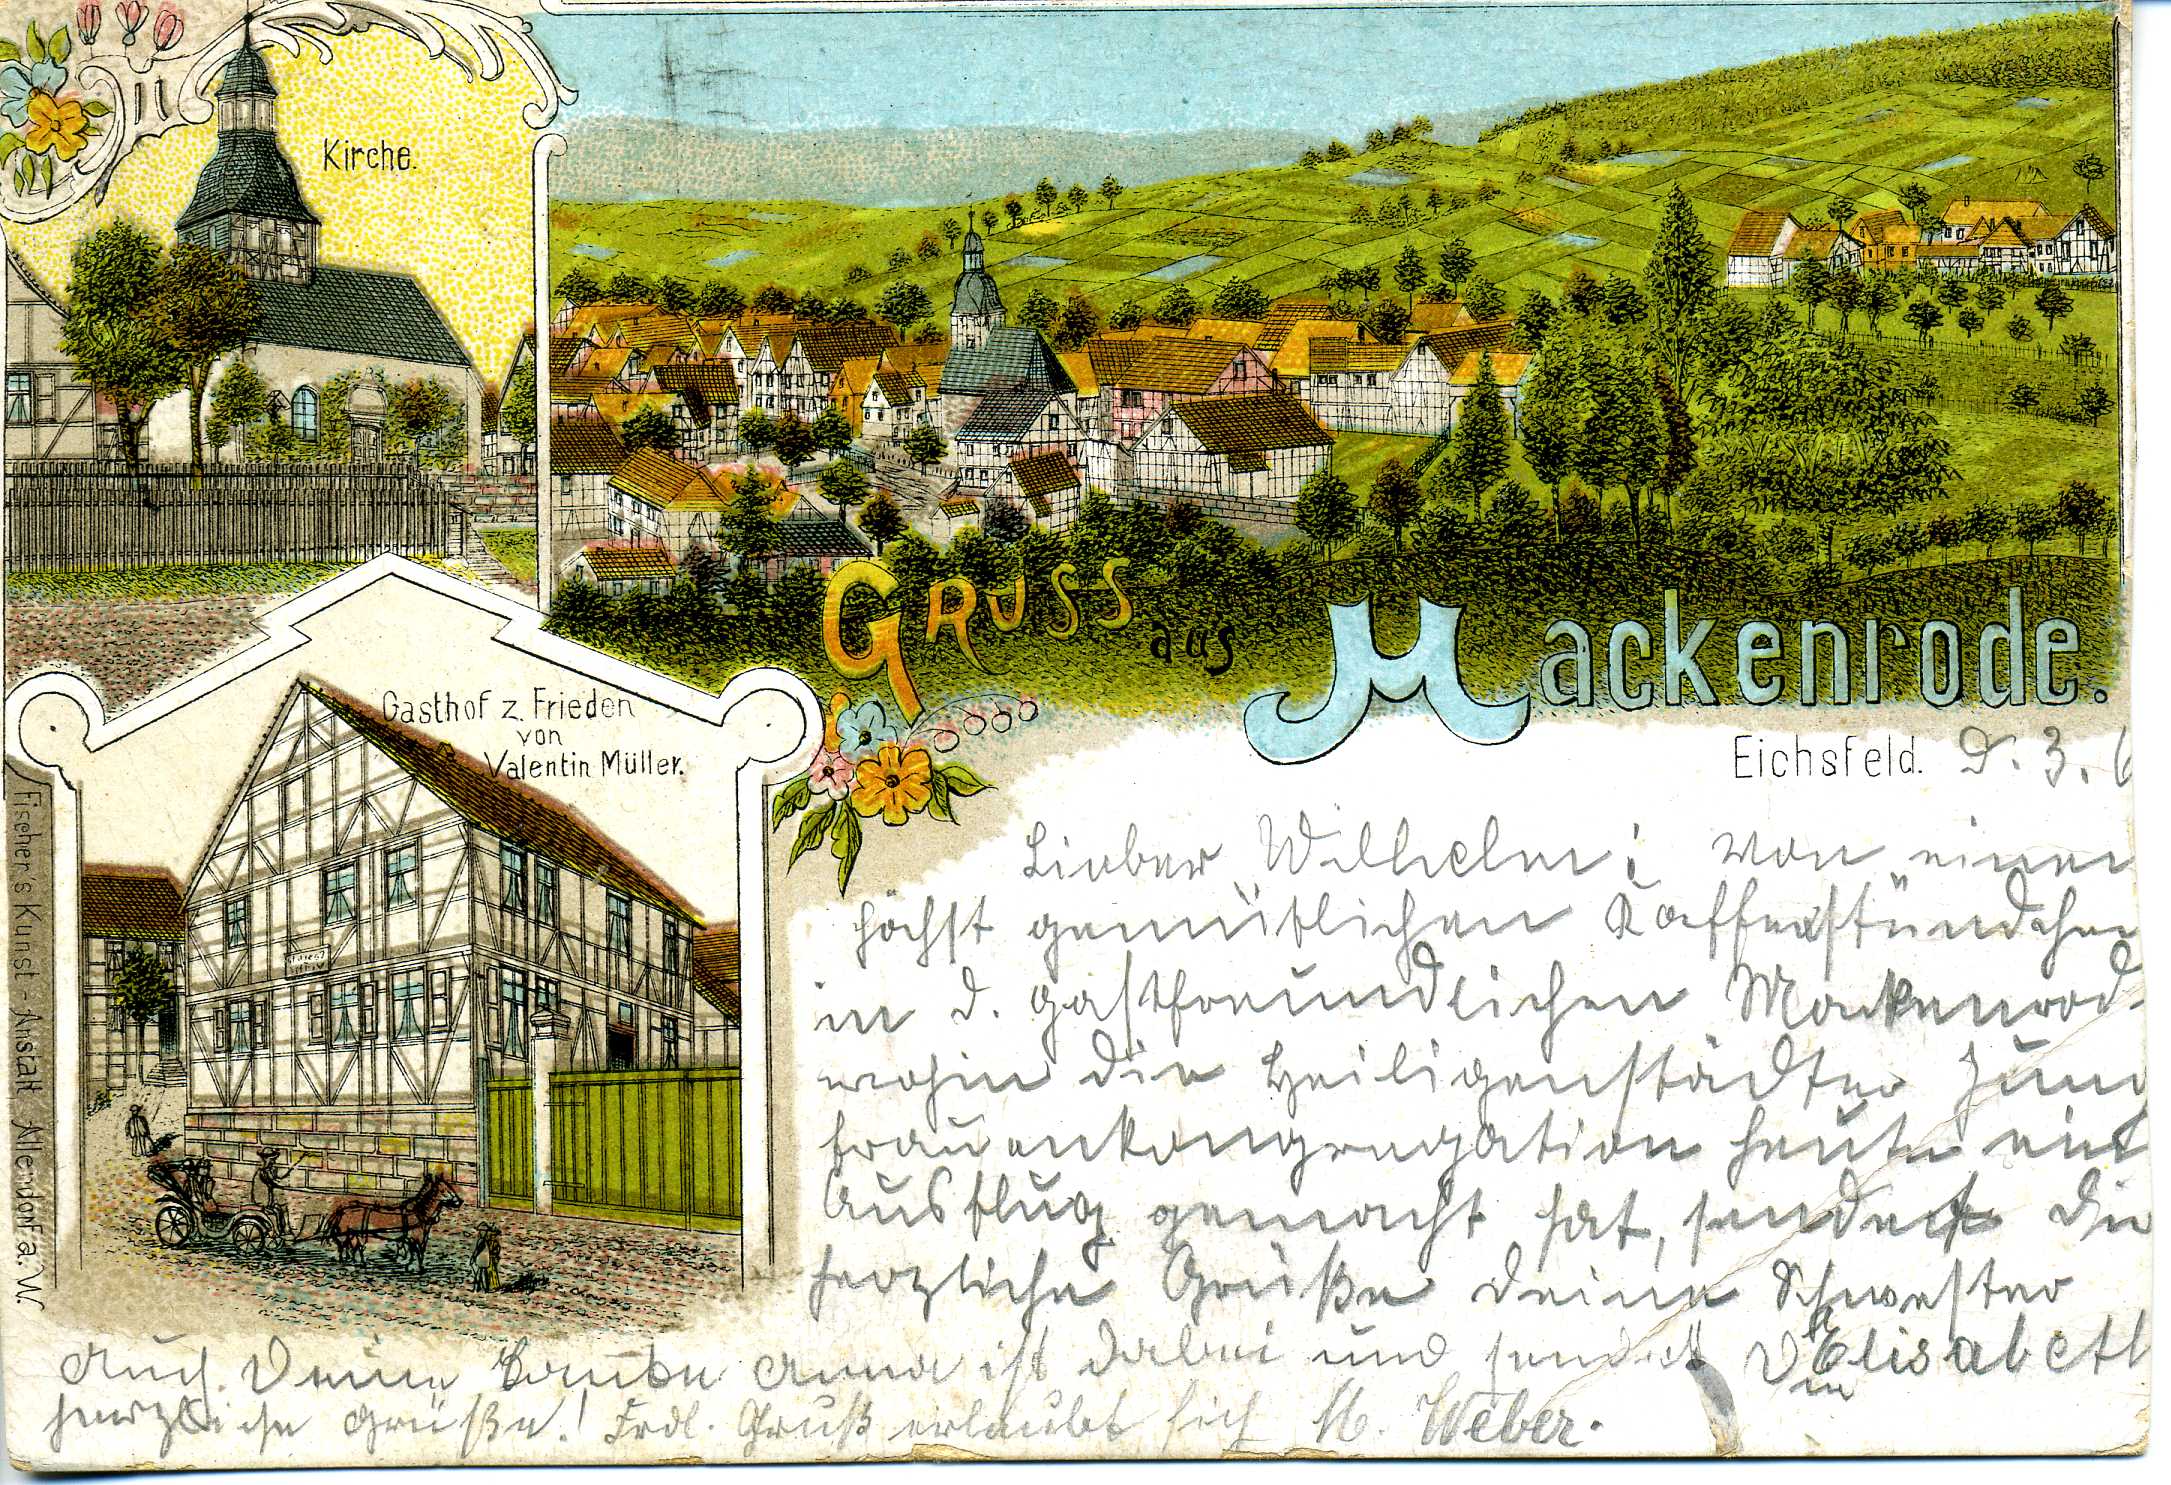 Kirche.
GRUSS aus Mackenrode.
Eichsfeld. D. 3. 6
Gasthof z. Frieden
von
Valentin Müller.
Fischer's Kunst-Anstalt Allendorf a. W.
Lieber Wilhelm! Von einem
höchst gemütlichen Kaffeestündchen
in d. gastfreundlichen Mackenrod-
wohin die Heiligenstädter Jung
frauenkongregation heute eine
Ausflug gemacht hat, sendet Dir
herzliche Grüße Deine Schwester
Elisabeth
Auch Deine Anna ist dabei und sendet Dir
herzliche Grüße! Frdl. Gruß erlaubt sich M. Weber.